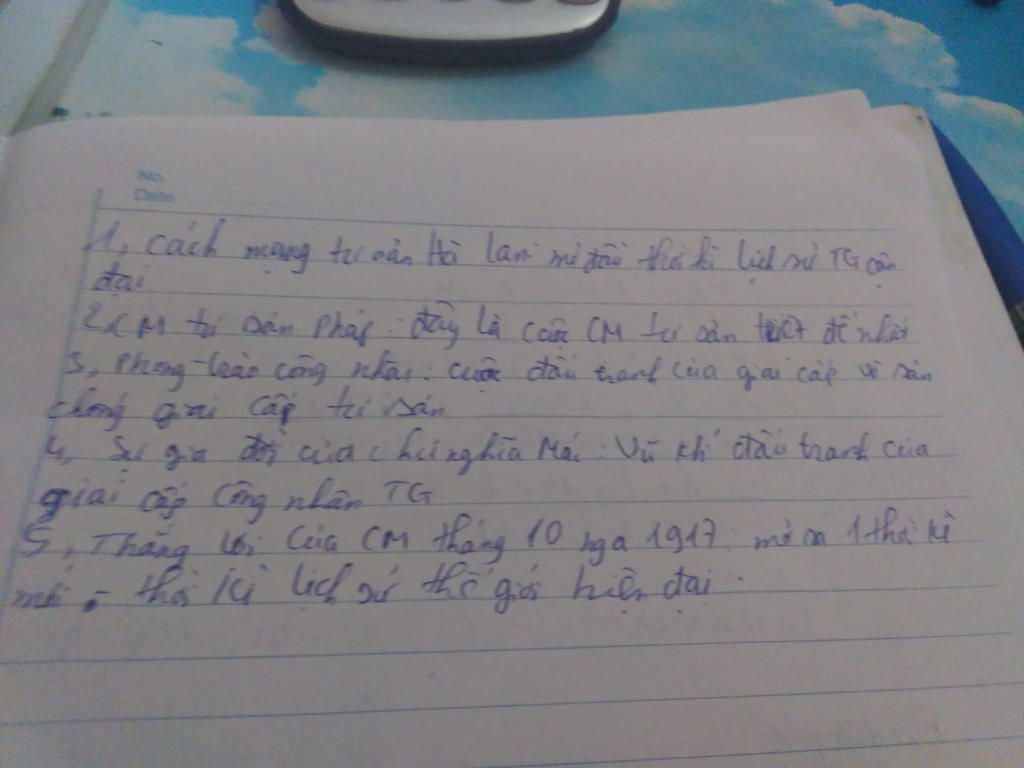 No.
Date
1, Cách mạng tư sản Hà Lan: mở đầu thời kì lịch sử TG cận
đại.
2, CM tư sản Pháp: đây là cuộc CM tư sản triệt để nhất
3, Phong trào công nhân: cuộc đấu tranh của giai cấp vô sản
chống giai cấp tư sản
4, Sự gia đời của chủ nghĩa Mác: Vũ khí đấu tranh của
giai cấp công nhân TG
5, Thắng lợi của CM tháng 10 nga 1917: mở ra 1 thời kì
mới - thời kì lịch sử thế giới hiện đại.